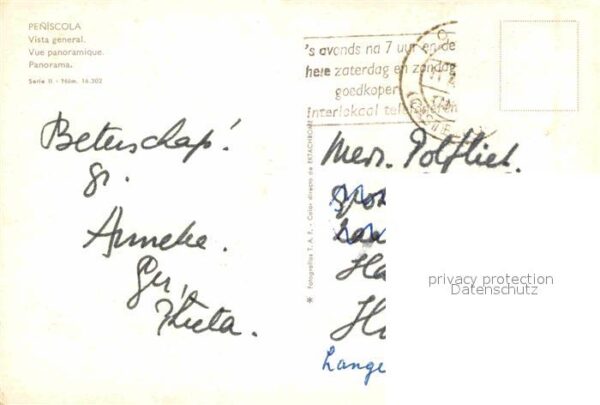 PEÑISCOLA
Vista general.
Vue panoramique.
Panorama.
Serie II - Núm. 16.302
's avonds na 7 uur en de
hele zaterdag en zondag
goedkoper
interlokaal telefoneren
Beterschap!
gr.
Anneke.
Gr,
Mevr.
Ha
H
Lange
* Fotografías T. A. F. - Color directo de EKTACHROME
privacy protection
Datenschutz